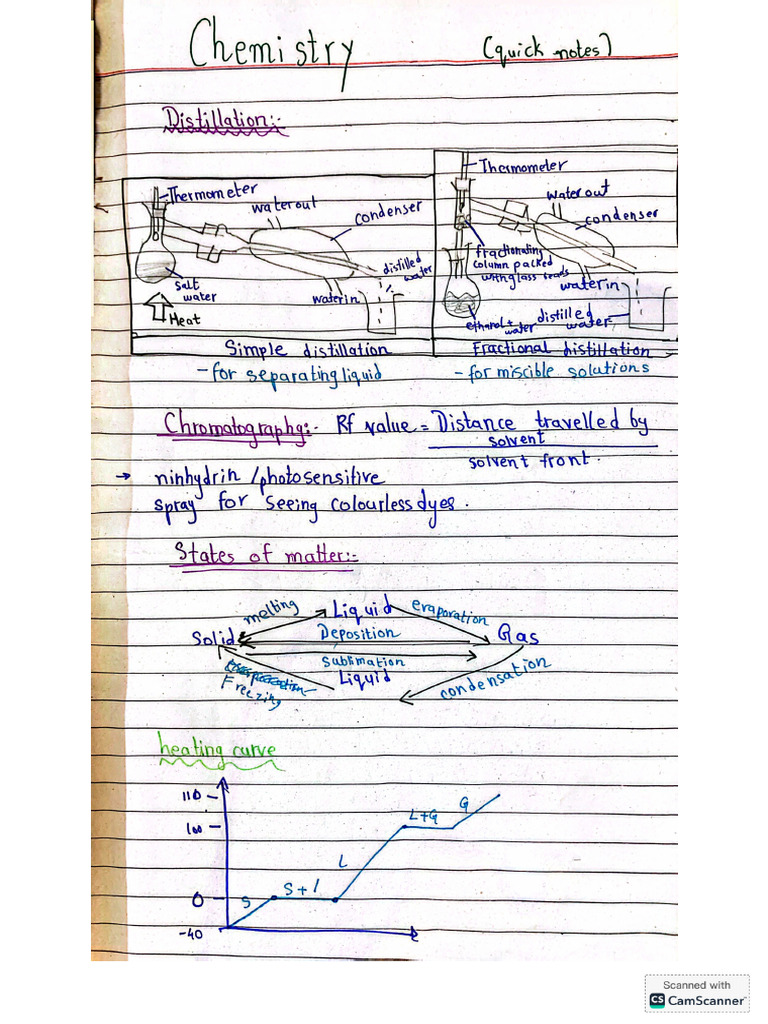 Chemistry (quick notes)
Distillation:-
Thermometer
water out
condenser
distilled water
salt water
water in
Heat
Simple distillation
- for separating liquid
Thermometer
water out
condenser
fractionating column packed with glass beads
water in
ethanol + water
distilled water
Fractional distillation
- for miscible solutions
Chromatography:- Rf value = Distance travelled by
solvent
solvent front.
→ ninhydrin / photosensitive
spray for seeing colourless dyes.
States of matter:-
melting Liquid evaporation
Solid Deposition Gas
Sublimation
Freezing Liquid condensation
heating curve
110
100
L+G G
L
0
S S+l
-40
Scanned with
CS CamScanner